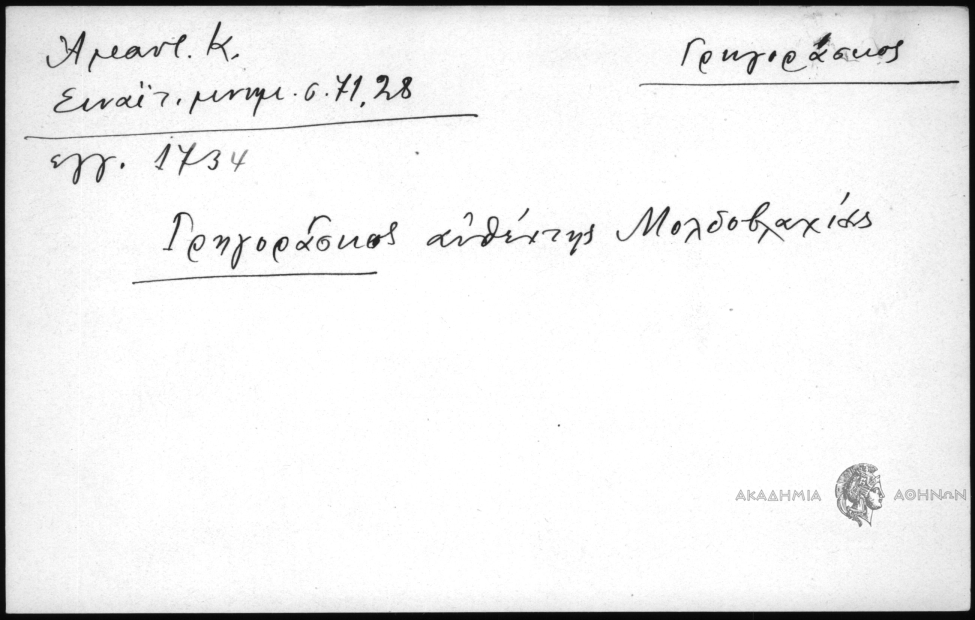 Ἀμαντ. Κ.
Γρηγοράσκος
Σιναϊτ. μνημ. σ. 71, 28
εγγ. 1734
Γρηγοράσκος αὐθέντης Μολδοβλαχίας
ΑΚΑΔΗΜΙΑ ΑΘΗΝΩΝ